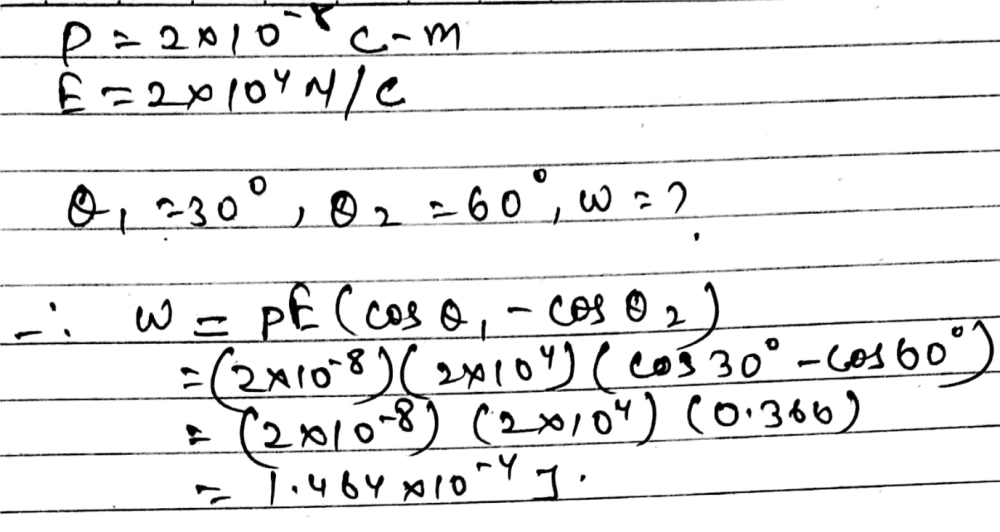 P = 2×10⁻⁸ C-m
E = 2×10⁴ N/C
θ₁ = 30°, θ₂ = 60°, W = ?
∴ W = pE (cos θ₁ - cos θ₂)
= (2×10⁻⁸)(2×10⁴)(cos 30° - cos 60°)
= (2×10⁻⁸) (2×10⁴) (0.366)
= 1.464 ×10⁻⁴ J.